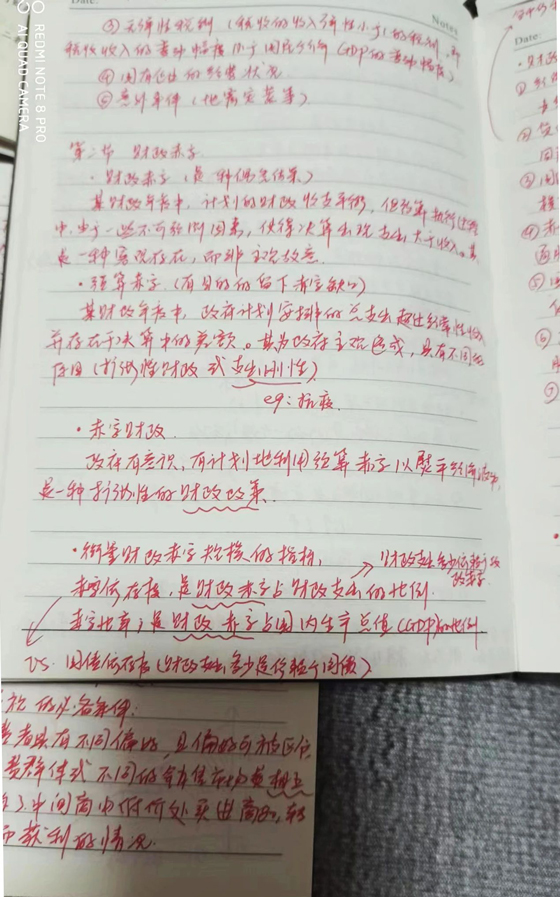 Notes
Date:
③无弹性税制（税收的收入弹性小于1的税制，即
税收收入的变动幅度小于国民经济GDP的变动幅度）
④国有企业的经营状况
⑤意外事件（地震灾害等）
第二节 财政赤字
·财政赤字（是一种偶然结果）
某财政年度中，计划的财政收支平衡，但预算执行过程
中，由于一些不可预测因素，使得决算出现支出大于收入。其
是一种客观存在，而非主观故意
·预算赤字（有目的的留下赤字缺口）
某财政年度中，政府计划安排的总支出超过经常性收入
并存在于决算中的差额。其为政府主观造成，具有不同
原因（扩张性财政或支出刚性）
eg：抗疫
·赤字财政
政府有意识、有计划地利用预算赤字以熨平经济波动，
是一种扩张性的财政政策
·衡量财政赤字规模的指标，
财政支出多少依赖于财
政赤字
赤字依存度，是财政赤字占财政支出的比例
赤字比率；是财政赤字占国内生产总值（GDP）的比例
VS. 国债依存度（财政支出多少是依赖于国债）
的必备条件：
者具有不同偏好，且偏好可被区分
群体或不同的销售市场是相互
中间商由低价处买进商品，转
而获利的情况
REDMI NOTE 8 PRO
AI QUAD CAMERA
Date:
·财政
①
②
③
④
⑤
⑥
⑦